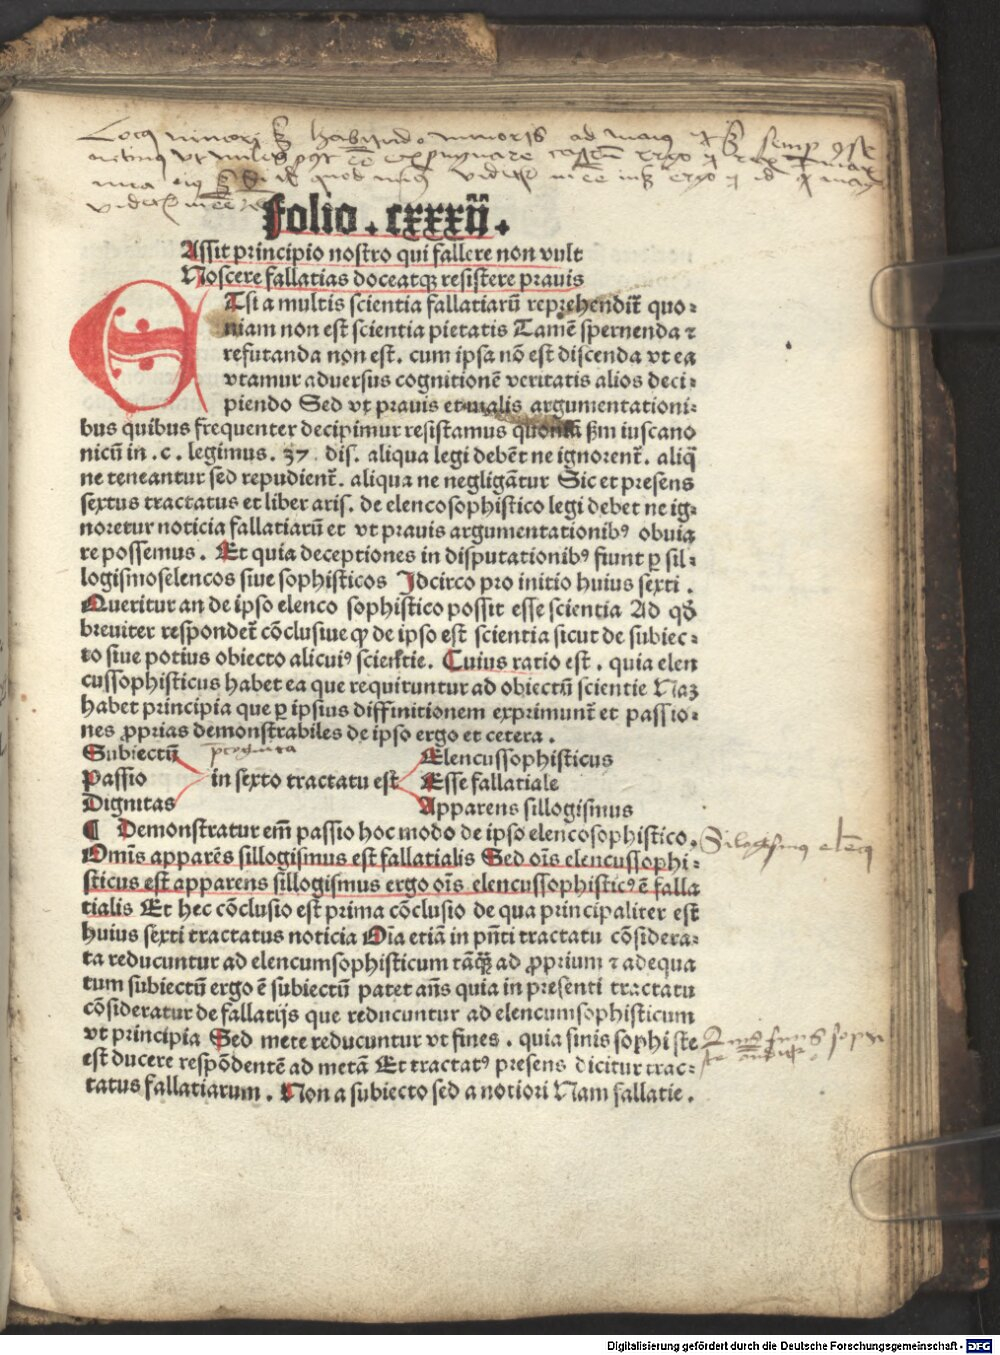 folio . cxxxij .
Assit principio nostro qui fallere non vult
Noscere fallatias doceatqꝫ resistere prauis
ETsi a multis scientia fallatiarū reprehendit̄ quo⸗
niam non est scientia pietatis Tamē spernenda ⁊
refutanda non est . cum ipsa nō est discenda vt ea
vtamur aduersus cognitionē veritatis alios deci⸗
piendo Sed vt prauis et malis argumentationi⸗
bus quibus frequenter decipimur resistamus quoniā ẜm ius cano
nicū in . c . legimus . 37 . dis. aliqua legi debēt ne ignorent̄ . aliq̄
ne teneantur sed repudient̄ . aliqua ne negligātur Sic et presens
sextus tractatus et liber aris. de elencosophistico legi debet ne ig⸗
noretur noticia fallatiarū et vt prauis argumentationibꝰ obuia
re possemus . Et quia deceptiones in disputationibꝰ fiunt ꝑ sil⸗
logismoselencos siue sophisticos Idcirco pro initio huius sexti .
Queritur an de ipso elenco sophistico possit esse scientia Ad qḋ
breuiter respondet̄ cōclusiue ꝙ de ipso est scientia sicut de subiec⸗
to siue potius obiecto alicuiꝰ scientie . Cuius ratio est . quia elen
cussophisticus habet ea que requiruntur ad obiectū scientie Naꝫ
habet principia que ꝑ ipsius diffinitionem exprimunt̄ et passio⸗
nes ꝓprias demonstrabiles de ipso ergo et cetera .
Subiectū Elencussophisticus
Passio in sexto tractatu est Esse fallatiale
Dignitas Apparens sillogismus
¶ Demonstratur em̄ passio hoc modo de ipso elencosophistico .
Omīs apparēs sillogismus est fallatialis Sed oīs elencussophi⸗
sticus est apparens sillogismus ergo oīs elencussophisticꝰ ē falla
tialis Et hec cōclusio est prima cōclusio de qua principaliter est
huius sexti tractatus noticia Oīa etiā in pn̄ti tractatu cōsidera⸗
ta reducuntur ad elencumsophisticum tāꝙ̄ ad ꝓprium ⁊ adequa
tum subiectū ergo ē subiectū patet an̄s quia in presenti tractatu
cōsideratur de fallatijs que reducuntur ad elencumsophisticum
vt principia Sed mete reducuntur vt fines . quia finis sophiste
est ducere respōdentē ad metā Et tractatꝰ presens dicitur trac⸗
tatus fallatiarum . Non a subiecto sed a notiori Nam fallatie .
Digitalisierung gefördert durch die Deutsche Forschungsgemeinschaft - DFG